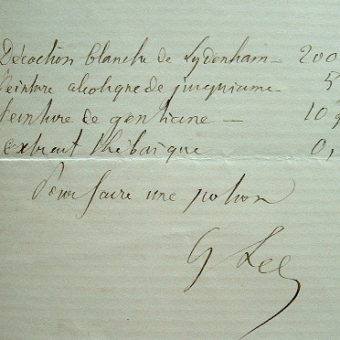 Décoction blanche de Sydenham — 200
Teinture alcoolique de jusquiame 5
teinture de gentiane — 10 g
extrait thébaïque 0,
Pour faire une potion
G Lee